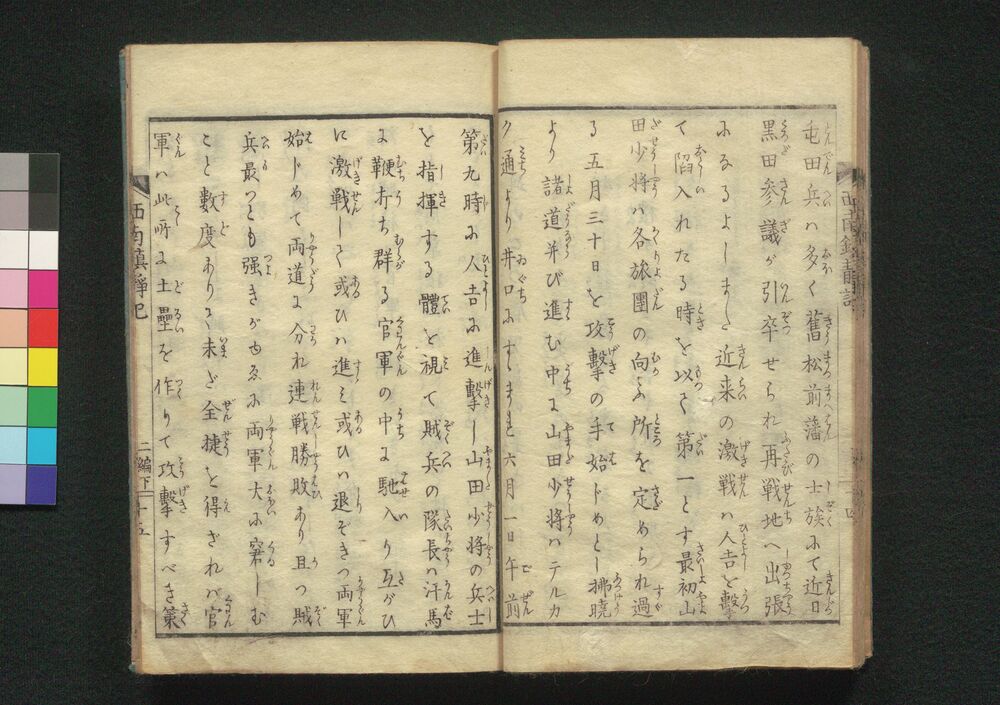 屯田兵ハ多く舊松前藩の士族にて近日
黒田参議が引卒せられ再戦地へ出張
になるよしまた近来の激戦ハ人吉を撃
て陷入れたる時を以て第一とす最初山
田少将ハ各旅團の向ふ所を定められ過
る五月三十日を攻擊の手始じめとし拂曉
より諸道并び進む中に山田少将ハテルカ
ク通より井口にすゝまれ六月一日午前
第九時に人吉に進擊し山田少将の兵士
を指揮する體を視て賊兵の隊長ハ汗馬
に鞭打ち群る官軍の中に馳入り互がひ
に激戦して或ひハ進ミ或ひハ退ぞきつ両軍
始じめて両道に分れ連戦勝敗あり且つ賊
兵最つとも强きがゆゑに両軍大に窘しむ
こと數度ありて未だ全捷を得ざれバ官
軍ハ此所に土壘を作りて攻擊すべき策
西南鎮静記
二編下
十五